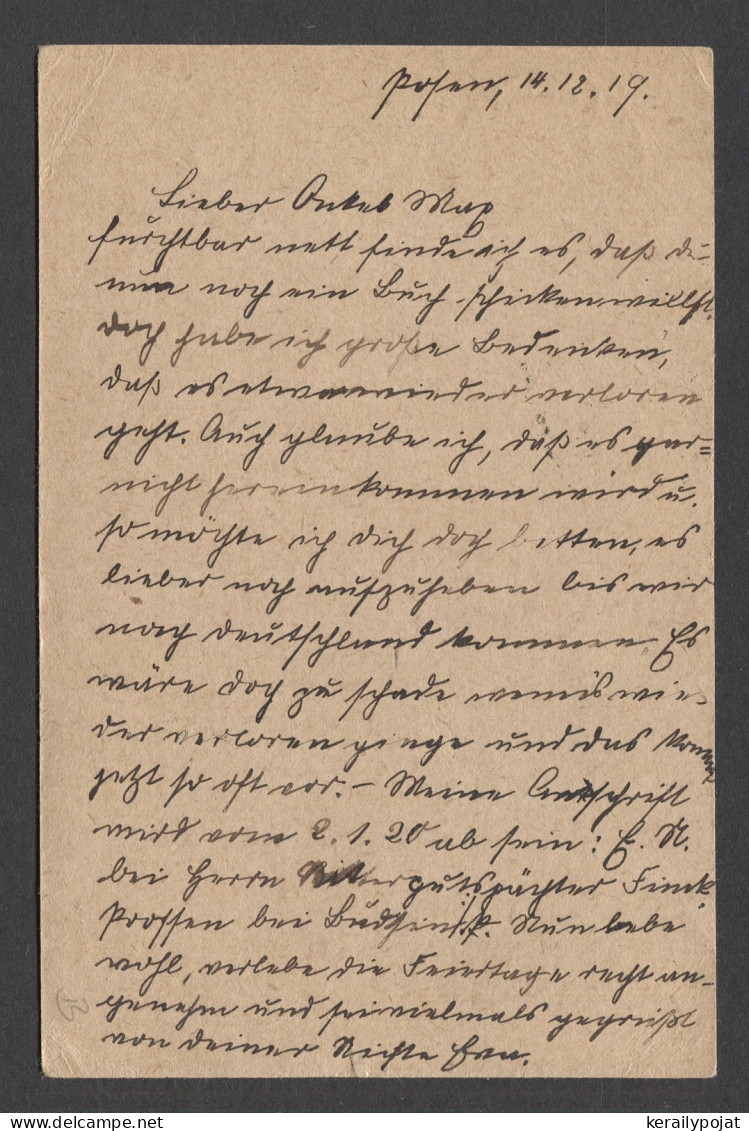 Posen, 14.12.19.
Lieber Onkel Max
furchtbar nett finde ich es, daß du
nun noch ein Buch schicken willst.
Doch habe ich große Bedenken,
daß es etwa wieder verloren
geht. Auch glaube ich, daß es gar=
nicht hereinkommen wird u.
so möchte ich dich doch bitten, es
lieber noch aufzuheben bis wir
nach Deutschland kommen. Es
wäre doch zu schade wenn's wie-
der verloren ginge und das kommt
jetzt so oft vor. – Meine Anschrift
wird vom 2.1.20 ab sein: E. N.
bei Herrn Rittergutspächter Finck
Prossen bei Budsin i/P. Nun lebe
wohl, verlebe die Feiertage recht an-
genehm und sei vielmals gegrüßt
von deiner Nichte Eva.
B
kerailypojat